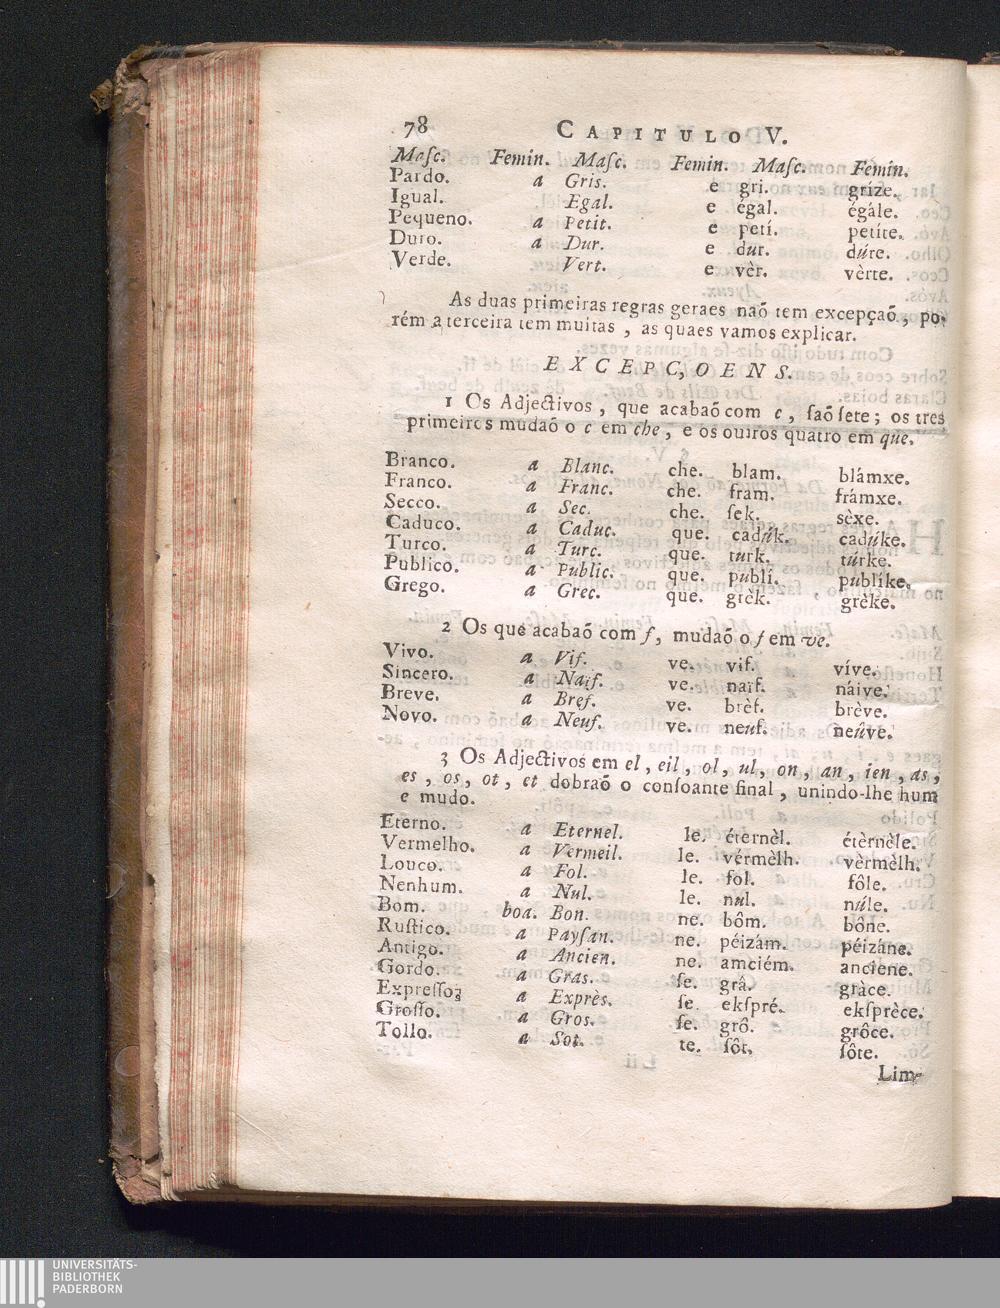 78 CAPITULO V.
Masc. Femin. Masc. Femin. Masc. Femin.
Pardo. a Gris. e gri. grize.
Igual. Egal. e égal. égále.
Pequeno. a Petit. e petí. petíte.
Duro. a Dur. e dur. dúre.
Verde. Vert. e vèr. vèrte.
As duas primeiras regras geraes naõ tem excepçaõ, po-
rém a terceira tem muitas, as quaes vamos explicar.
EXCEPC,OENS.
1 Os Adjectivos, que acabaõ com c, ſaõ ſete; os tres
primeiros mudaõ o c em che, e os outros quatro em que.
Branco. a Blanc. che. blam. blámxe.
Franco. a Franc. che. fram. frámxe.
Secco. a Sec. che. ſek. sèxe.
Caduco. a Caduc. que. cadúk. cadúke.
Turco. a Turc. que. turk. túrke.
Publico. a Public. que. publí. publíke.
Grego. a Grec. que. grèk. grèke.
2 Os que acabaõ com f, mudaõ o f em ve.
Vivo. a Vif. ve. vif. víve.
Sincero. a Naïf. ve. naïf. náive.
Breve. a Bref. ve. brèf. brève.
Novo. a Neuf. ve. neuf. neûve.
3 Os Adjectivos em el, eil, ol, ul, on, an, ien, as,
es, os, ot, et dobraõ o conſoante final, unindo-lhe hum
e mudo.
Eterno. a Eternel. le. éternèl. étèrnèle.
Vermelho. a Vermeil. le. vérmèlh. vèrmèlh.
Louco. a Fol. le. fol. fôle.
Nenhum. a Nul. le. nul. núle.
Bom. boa. Bon. ne. bôm. bône.
Ruſtico. a Payſan. ne. péizám. péizáne.
Antigo. a Ancien. ne. amciém. anciene.
Gordo. a Gras. ſe. grâ. gràce.
Expreſſo; a Exprès. ſe. ekſpré. ekſprèce.
Groſſo. a Gros. ſe. grô. grôce.
Tollo. a Sot. te. ſôt. ſôte.
Lim-
UNIVERSITÄTS-
BIBLIOTHEK
PADERBORN